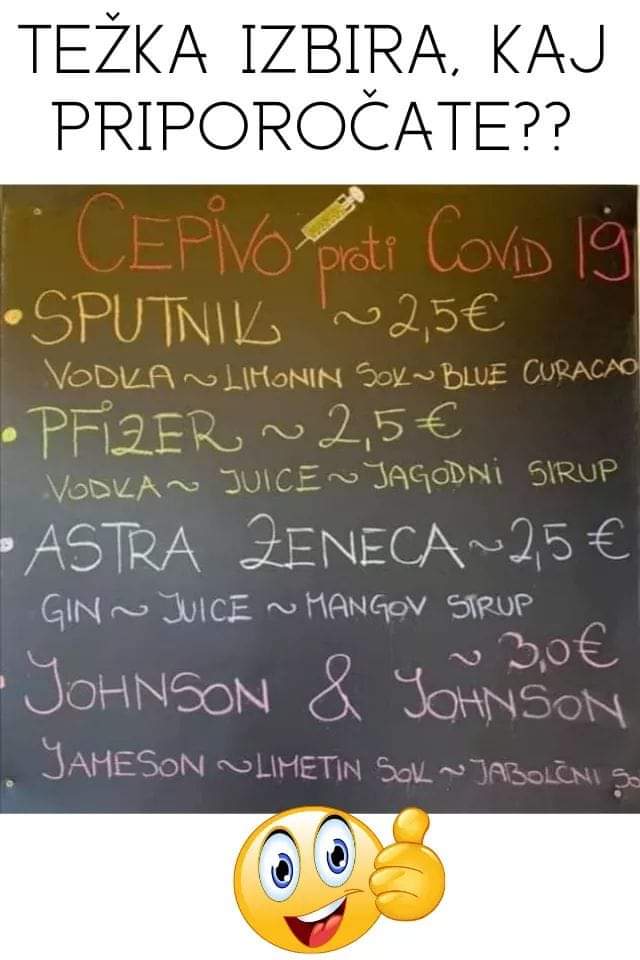 TEŽKA IZBIRA, KAJ
PRIPOROČATE??
CEPIVO proti COVID 19
• SPUTNIK ~ 2,5€
VODKA ~ LIMONIN SOK ~ BLUE CURACAO
• PFIZER ~ 2,5€
VODKA ~ JUICE ~ JAGODNI SIRUP
• ASTRA ZENECA ~ 2,5€
GIN ~ JUICE ~ MANGOV SIRUP
~ 3,0€
• JOHNSON & JOHNSON
JAMESON ~ LIMETIN SOK ~ JABOLČNI